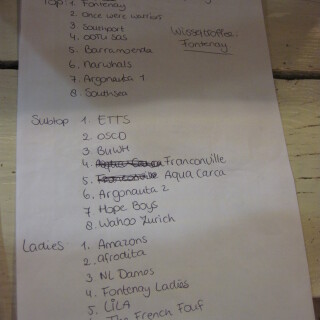 Top: 1. Fontenay
2. Once were warriors
3. Southport
4. OOTU SAS
5. Barramenda
6. narwhals
7. Argonauta 1
8. Southsea
Fontenay
Subtop 1. ETTS
2. OSCD
3. BUWH
4. Franconville
5. Franconville Aqua Carca
6. Argonauta 2
7 Hope Boys
8. Wahoo Zurich
Ladies 1. Amazons
2. Afrodita
3. NL Dames
4. Fontenay Ladies
5. LILA
The French Touf